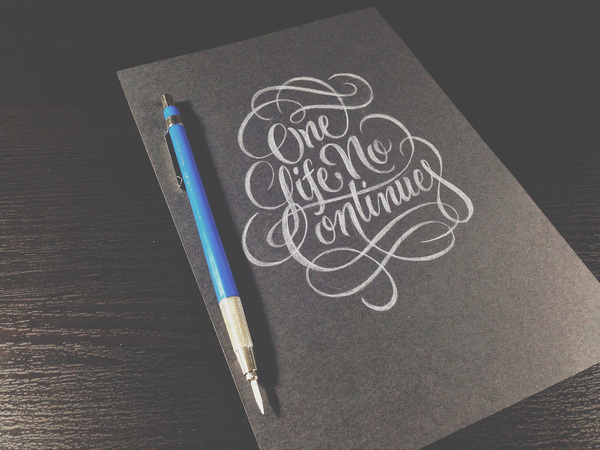 One
Life No
Continues